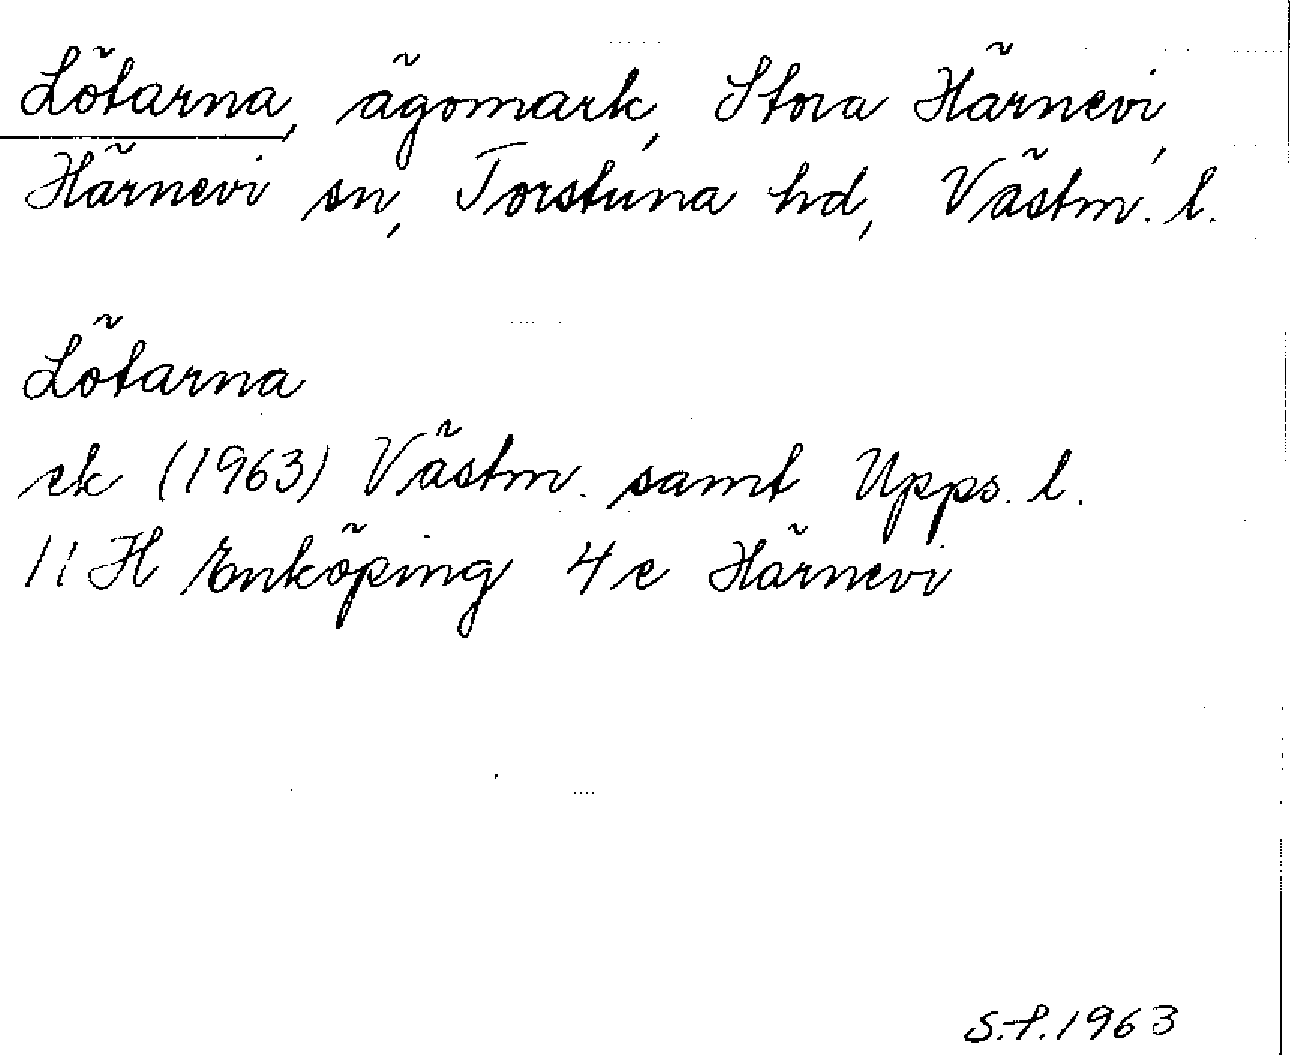 Lötarna, ägomark, Stora Härnevi,
Härnevi sn, Torstuna hd, Västm. l.
Lötarna
ek (1963) Västm. samt Upps. l.
11 H Enköping 4 e Härnevi
S.P. 1963